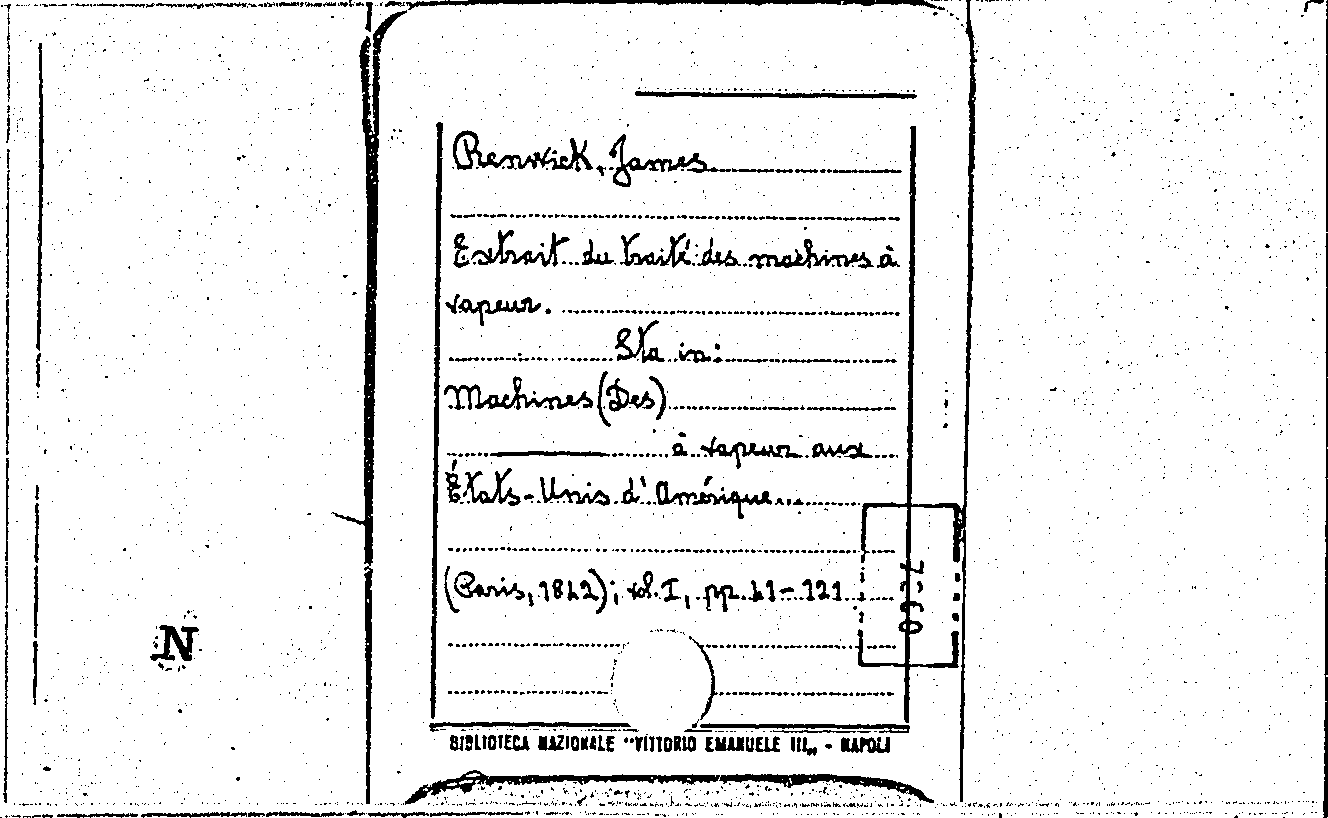 Renwick, James
Extrait du traité des machines à
vapeur.
Sta in:
Machines (Des)
à vapeur aux
États-Unis d'Amérique...
(Paris, 1842); vol. I, pp. 41-121
N
BIBLIOTECA NAZIONALE "VITTORIO EMANUELE III„ - NAPOLI